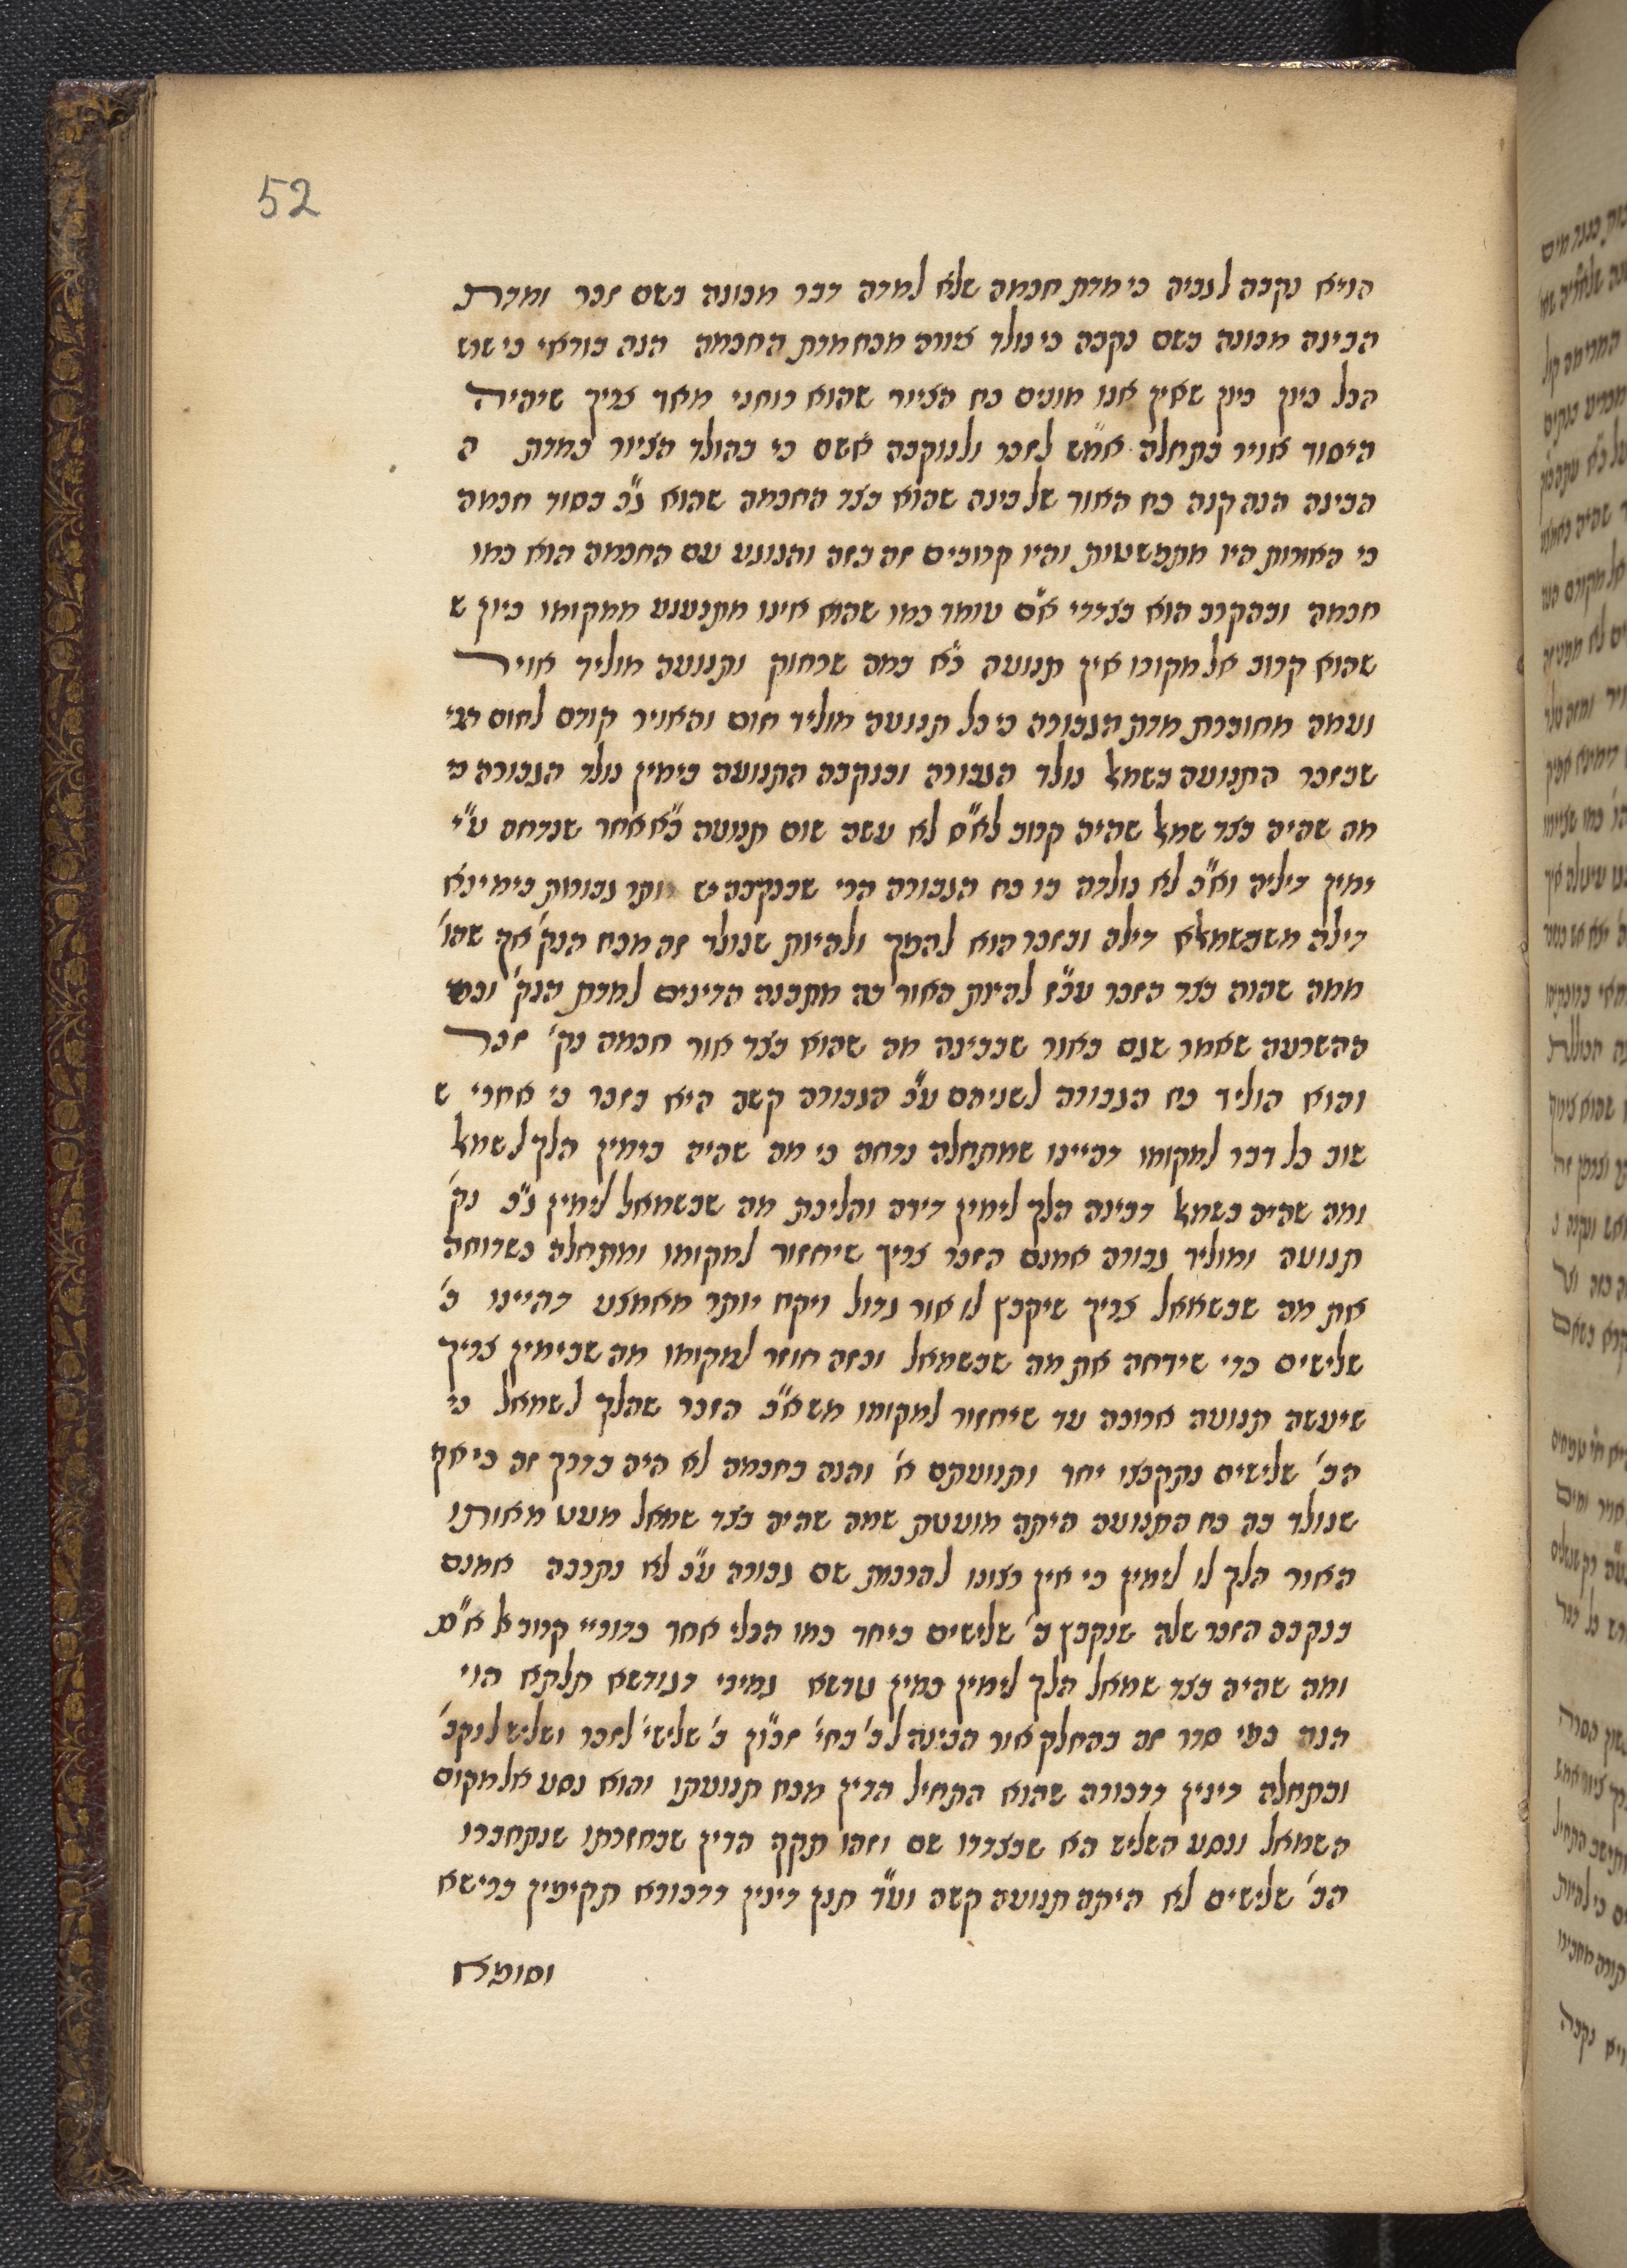 52
הויא נקבה לגביה כי מדת חכמה שלא למדה דבר מכונה בשם זכר ומדת
הבינה מכונה בשם נקבה כי נולד צורה מכח מדת החכמה הנה בודאי כי שרש
הכל כיון כיון שאין אנו מונים כח הציור שהוא רוחני מאד צריך שיהיה
היסוד אויר בתחלה אמ"ש לזכר ולנוקבה אשם כי בהולד הציור במדת ה
הבינה הנה קנה כח האור של בינה שהוא בצד החכמה שהוא ג"כ בסוד חכמה
כי האורות היו מתפשטות והיו קרובים זה בזה והנוגע עם החכמה הוא כמו
חכמה ובהקרב הוא בצדדי א"ס עומד כמו שהוא אינו מתנענע ממקומו כיון ש
שהוא קרוב אל מקורו אין תנועה כ"א במה שרחוק ותנועה מוליד אויר
ועמה מחוברת מדת הגבורה כי כל תנועה מוליד חום והאויר קודם לחום הרי
שבזכר התנועה בשמאל נולד הגבורה ובנקבה התנועה בימין נולד הגבורה כי
מה שהיה בצד שמאל שהיה קרוב לא"ס לא עשה שום תנועה כ"א אחר שנדחה ע"י
ימין דיליה וא"כ לא נולדה בו כח הגבורה הרי שבנקבה יש ועד גבורות בימינא
דילה משבשמאלא דילה ובזכר הוא להפך ולהיות שנולד זה מכח הנק' אף שהו'
ממה שהוה בצד הזכר עכ"ז להיות האור בה מתכנה הדינים למדת הנק' וכמו
ההשרעה שאמר שגם באור שבבינה מה שהוא בצד אור חכמה נק' זכר
והוא הוליד כח הגבורה לשניהם ע"כ הגבורה קשה היא בזכר כי אחרי ש
שוב כל דבר למקומו דהיינו שמתחלה נדחה כי מה שהיה בימין הלך לשמאל
ומה שהיה בשמאל דבינה הלך לימין דידה והליכת מה שבשמאל לימין ג"כ נק'
תנועה ומוליד גבורה אמנם הזכר צריך שיחזור למקומו ומתחלה כשדוחה
את מה שבשמאל צריך שיקבץ לו אור גדול ויקח יותר מאמצע דהיינו ב'
שלישים כדי שידחה את מה שבשמאל ובזה חוזר למקומו מה שבימין צריך
שיעשה תנועה ארוכה עד שיחזור למקומו משא"כ הזכר שהלך לשמאל כי
הב' שלישים נתקבצו יחד ותנועתם א' והנה בחכמה לא היה בדרך זה כי אף
שנולד בה כח התנועה היתה מועטת שמה שהיה בצד שמאל מעט מאותו
האור הלך לו לימין כי אין רצונו להרבות שם גבורה ע"כ לא נתרבה אמנם
בנקבה הזכר שלה שנקבץ ב' שלישים ביחד כמו הכלי אחר קרוב לא"ס
ומה שהיה בצד שמאל הלך לימין כמין גודשא נמירי דגודשא תלתא הוי
הנה כפי סדר זה בהחלק אור הבינה לב' כחי' זכ"ון ב' שלישי' לזכר ושליש לנקב'
ובתחלה דינין דדכורה שהוא התחיל הדין מכח תנועתו והוא נסע אל מקום
השמאל ונסע השליש הא שבצדדו שם וזהו תקף הדין שבחזרתו שנתחברו
הב' שלישים לא היתה תנועה קשה וע"ד תנן דינין דדכורא תקיפין ברישא
וסופא